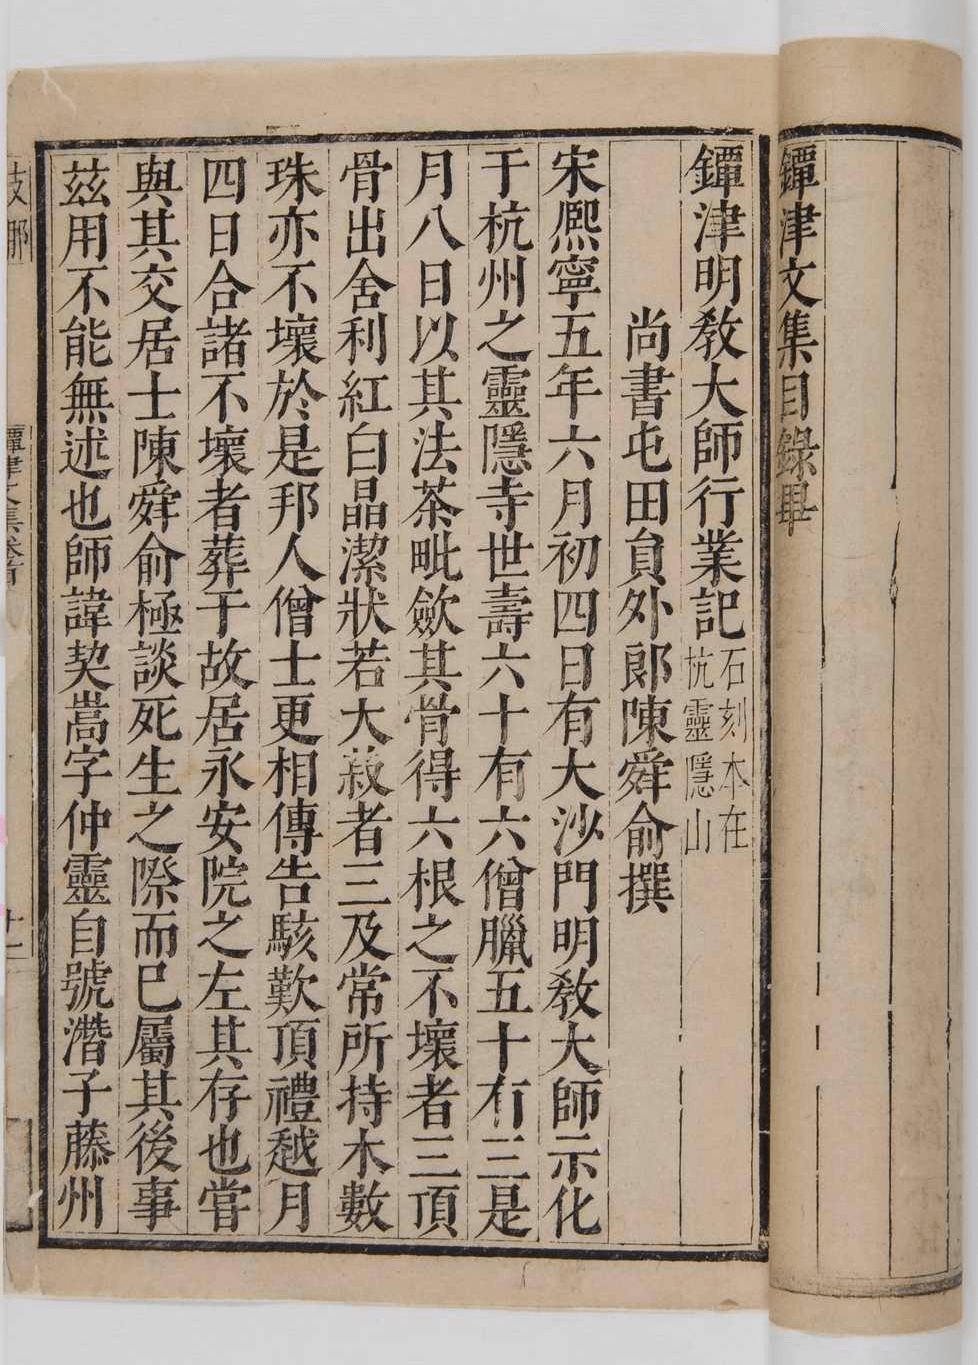 鐔津文集目錄畢
鐔津明敎大師行業記石刻本在杭靈隱山
尚書屯田員外郎陳舜俞撰
宋熈寧五年六月初四日有大沙門明敎大師示化
于杭州之靈隱寺世壽六十有六僧臘五十有三是
月八日以其法茶毗斂其骨得六根之不壞者三頂
骨出舍利紅白晶潔狀若大菽者三及常所持木數
珠亦不壞於是邦人僧士更相傳告駭歎頂禮越月
四日合諸不壞者葬于故居永安院之左其存也嘗
與其交居士陳舜俞極談死生之際而已屬其後事
茲用不能無述也師諱契嵩字仲靈自號潛子藤州
鐔津文集卷首